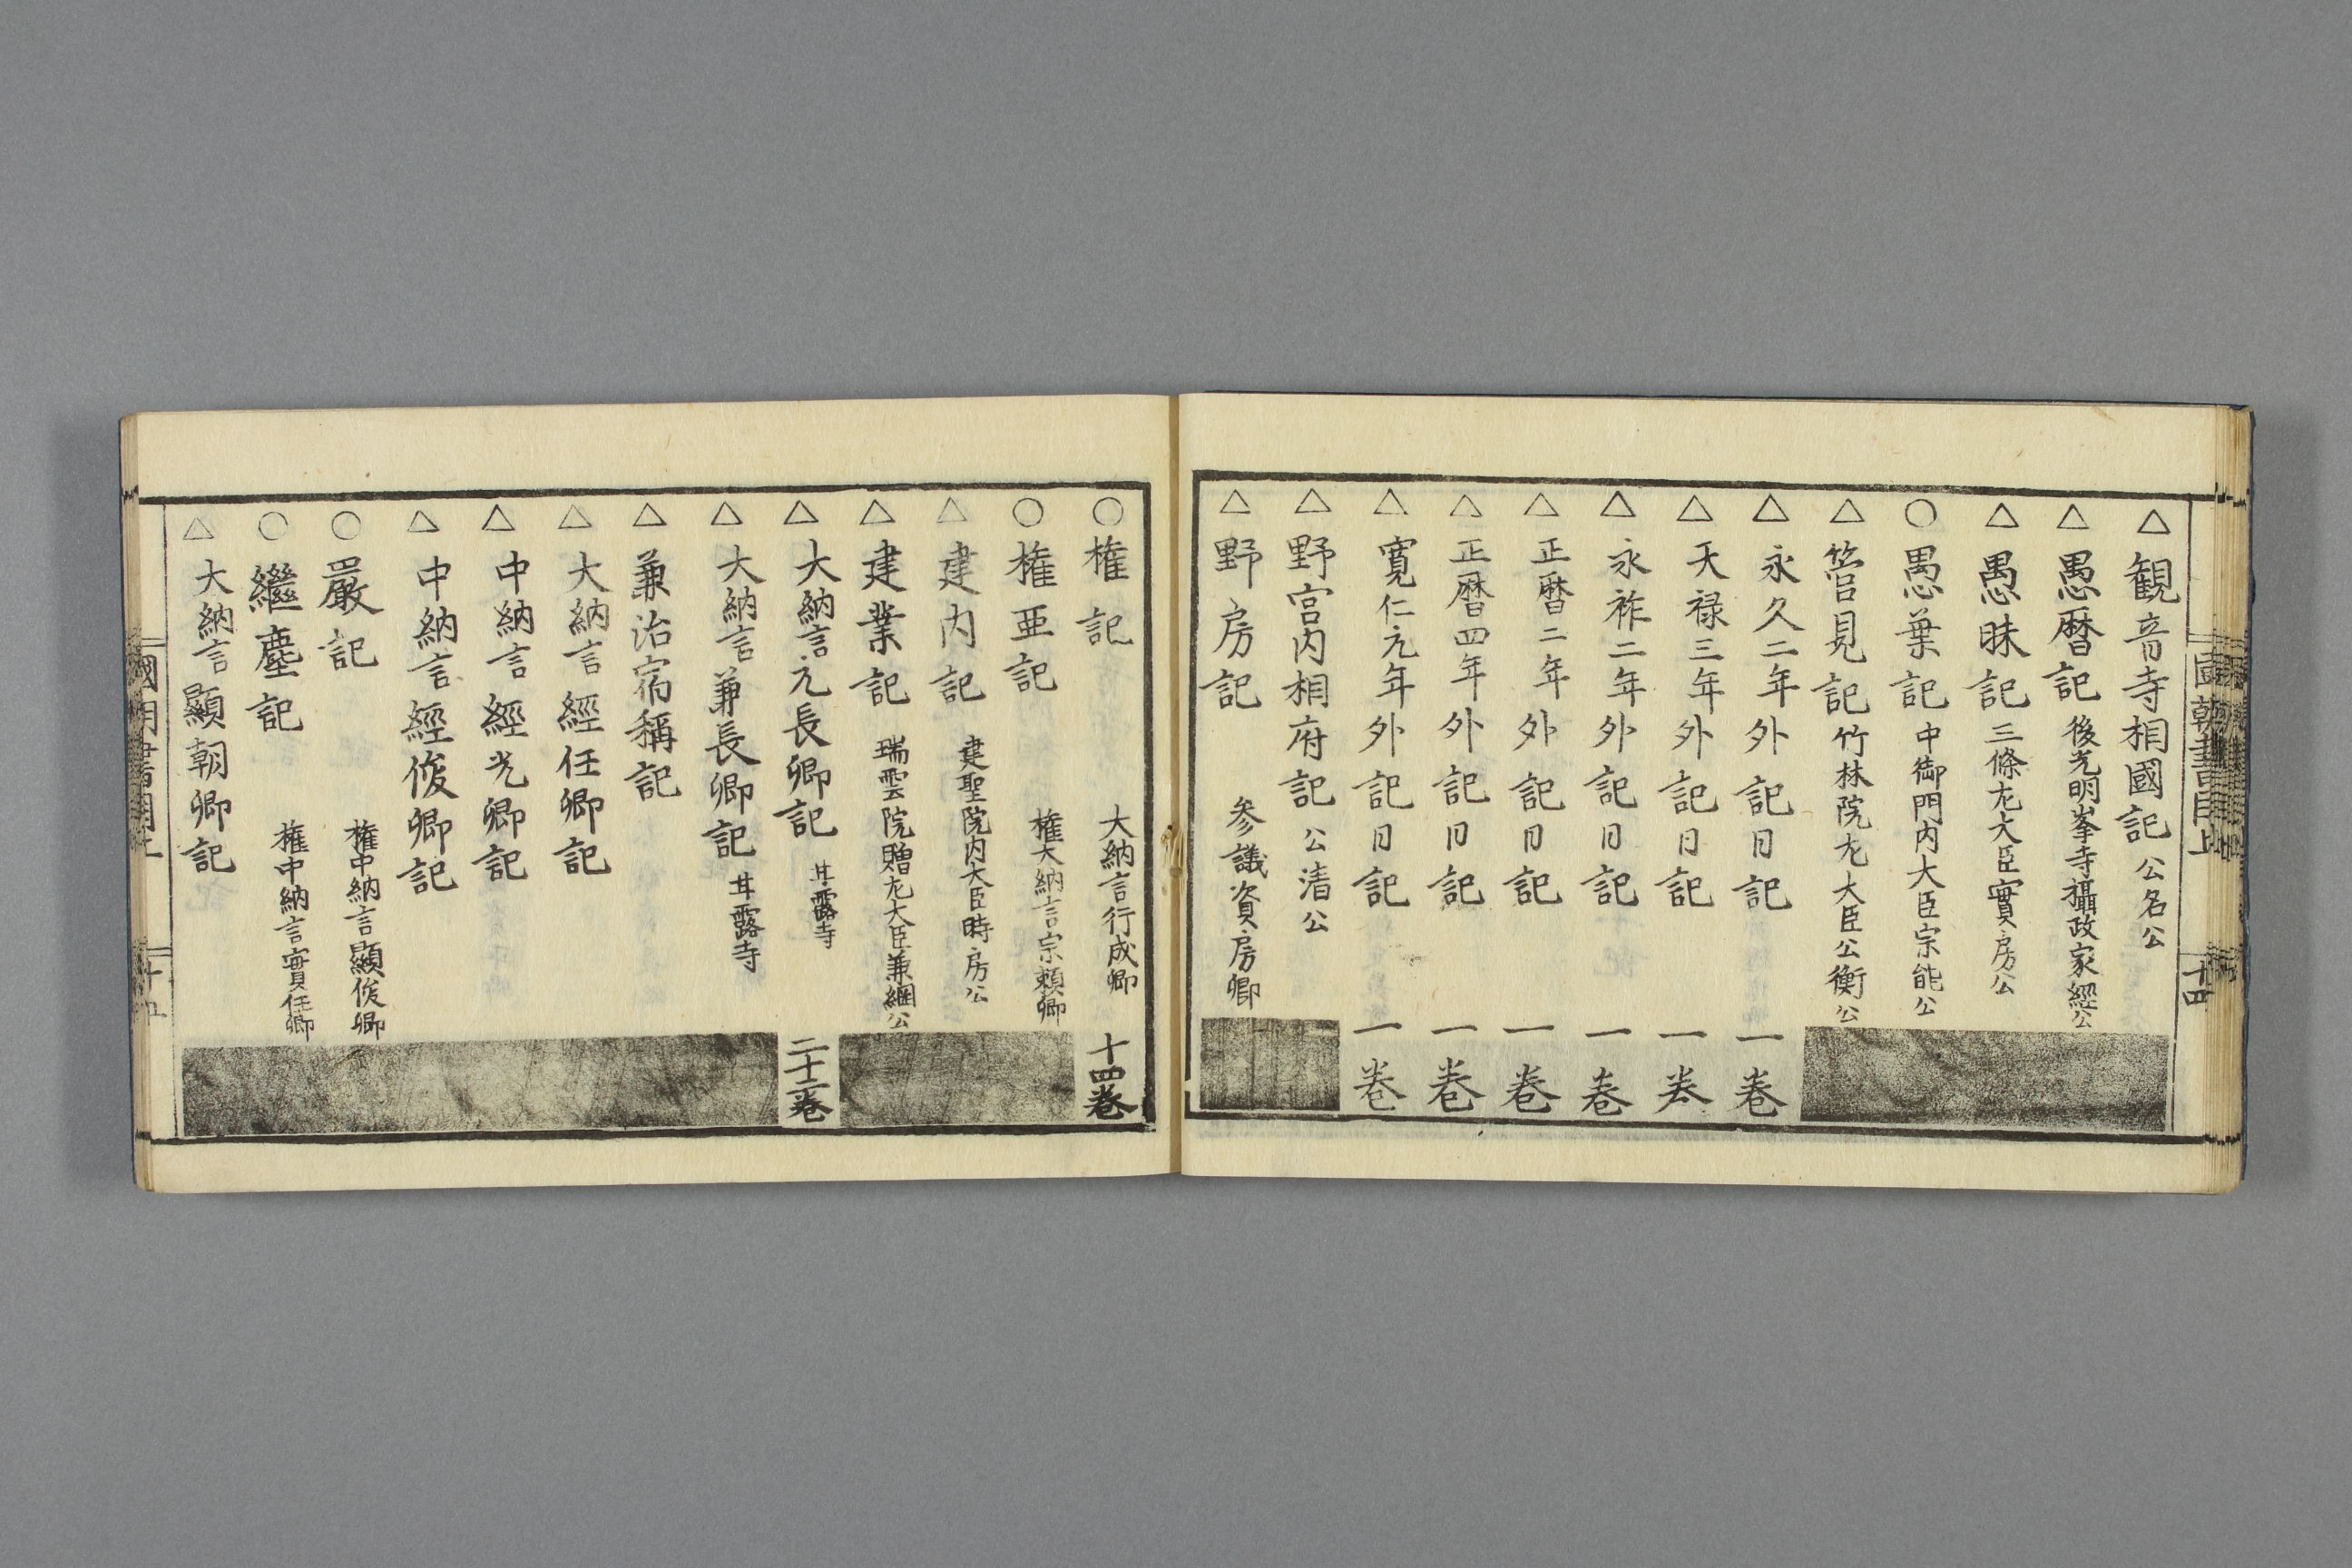 國朝書目上
十四
△觀音寺相國記 公名公
△愚暦記 後光明峯寺攝政家經公
△愚昧記 三條左大臣實房公
○愚葉記 中御門内大臣宗能公
△管見記 竹林院左大臣公衡公
△永久二年外記日記 一巻
△天禄三年外記日記 一巻
△永祚二年外記日記 一巻
△正暦二年外記日記 一巻
△正暦四年外記日記 一巻
△寛仁元年外記日記 一巻
△野宮内相府記 公清公
△野房記 参議資房卿
○権記 大納言行成卿 十四巻
○権亜記 権大納言宗頼卿
△建内記 建聖院内大臣時房公
△建業記 瑞雲院贈左大臣兼綱公
△大納言元長卿記 甘露寺 二十二巻
△大納言兼長卿記 甘露寺
△兼治宿稱記
△大納言經任卿記
△中納言經光卿記
△中納言經俊卿記
○嚴記 権中納言顯俊卿
○繼塵記 権中納言實任卿
△大納言顯朝卿記